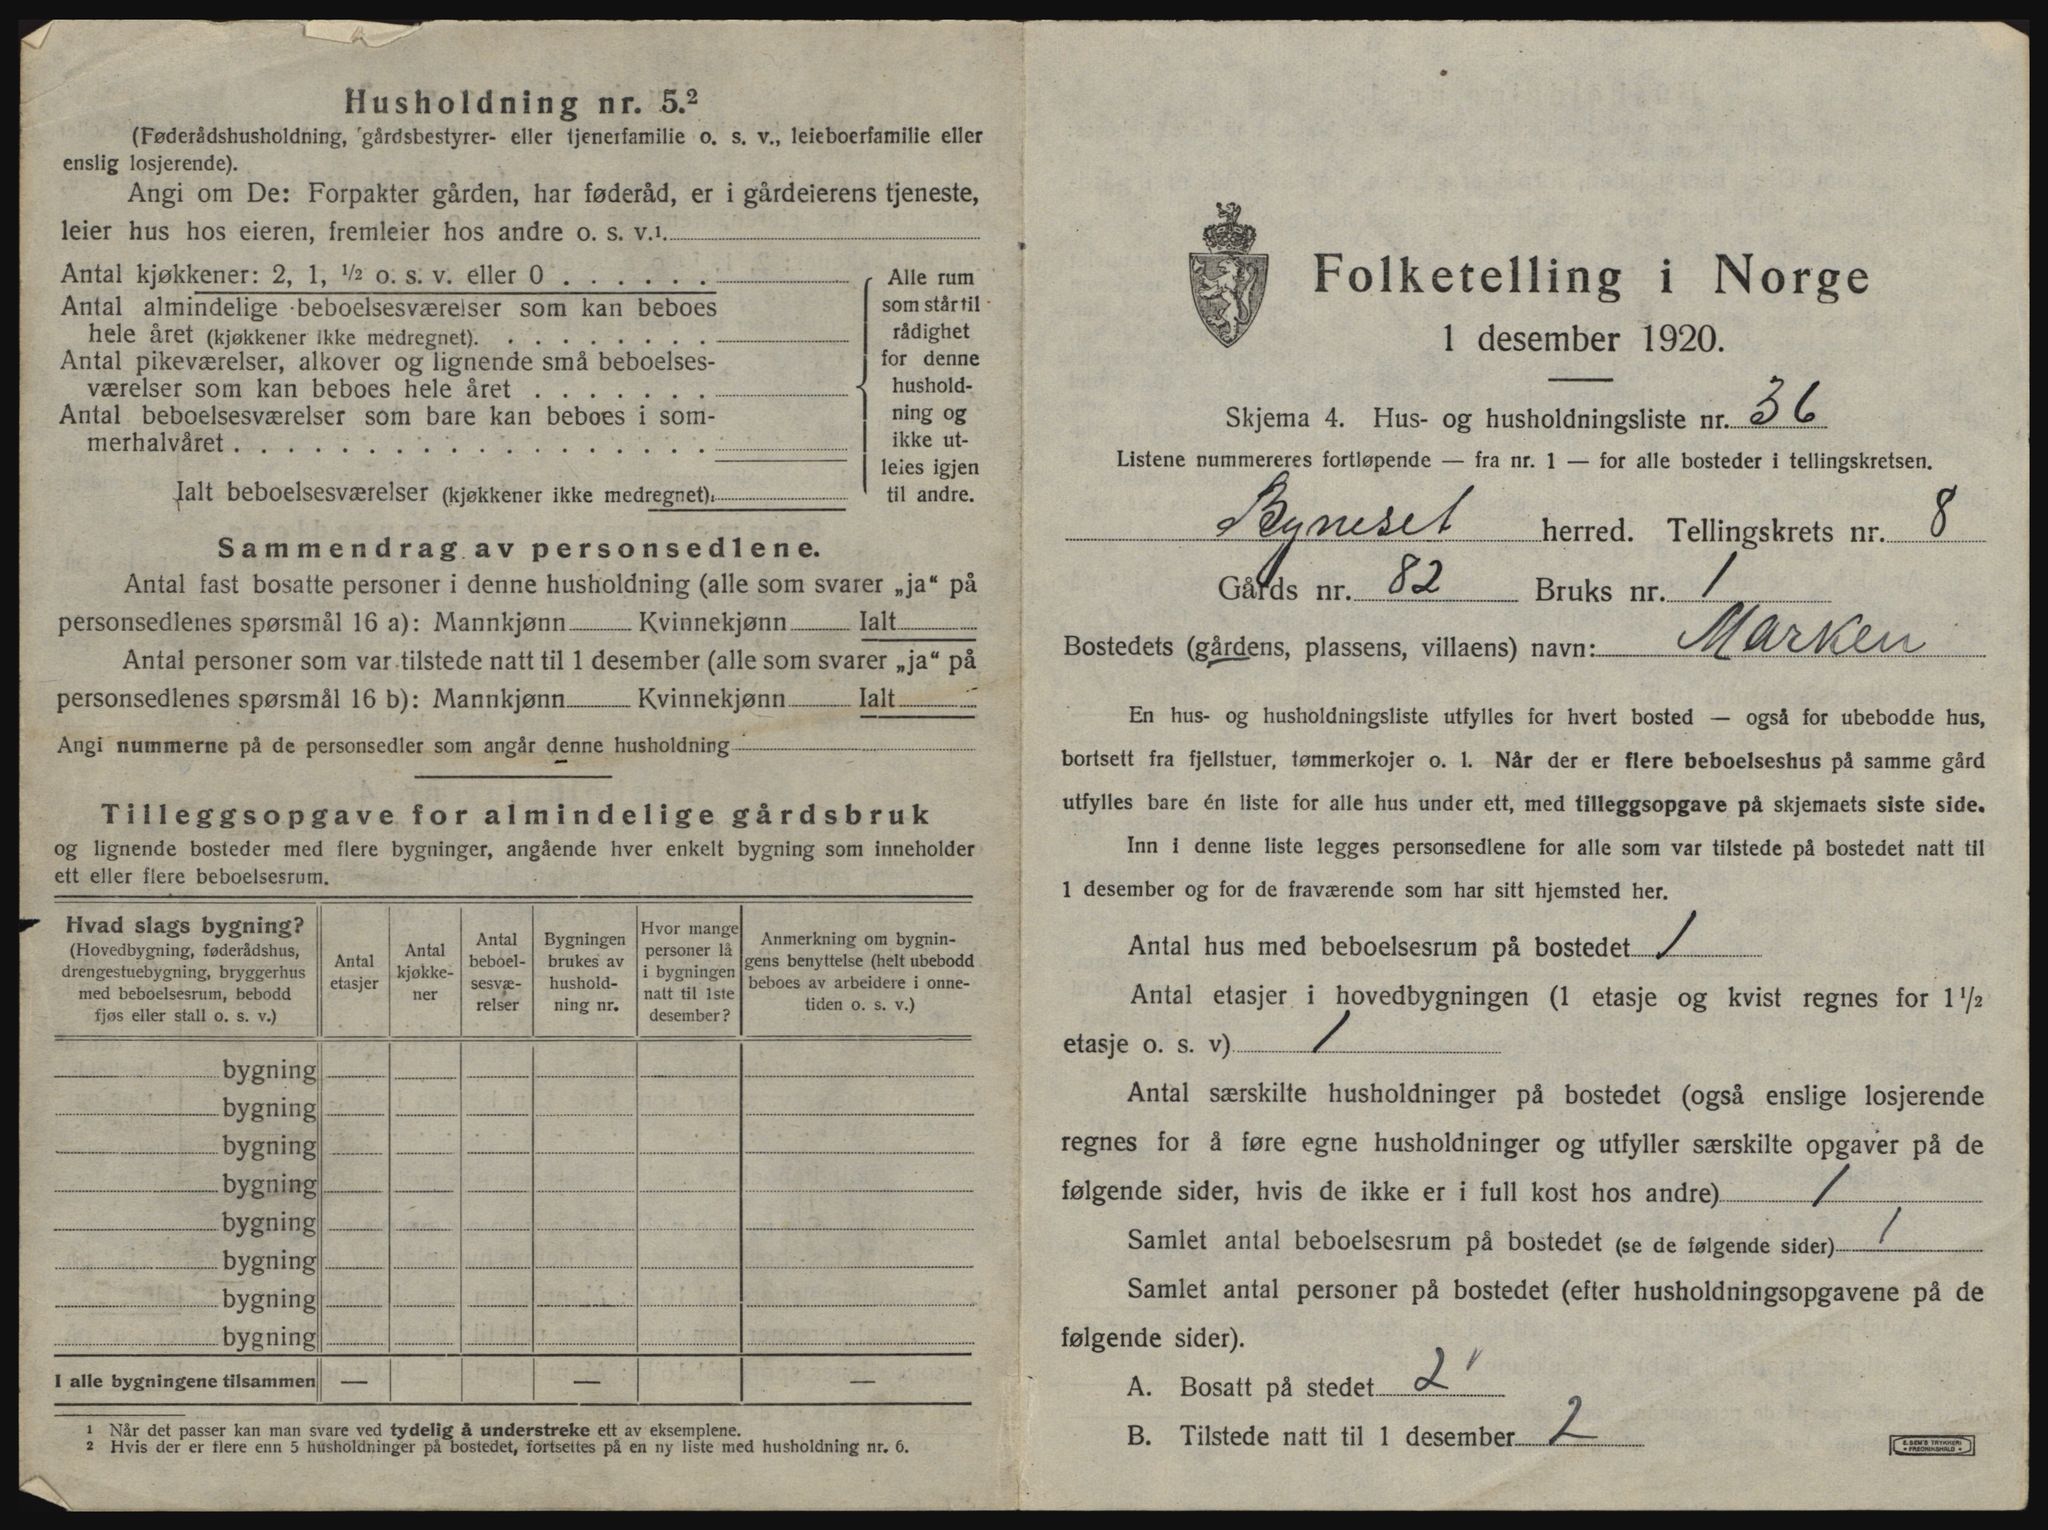 Husholdning nr. 5.²
(Føderådshusholdning, gårdsbestyrer- eller tjenerfamilie o. s. v., leieboerfamilie eller
enslig losjerende).
Angi om De: Forpakter gården, har føderåd, er i gårdeierens tjeneste,
leier hus hos eieren, fremleier hos andre o. s. v.¹
Antal kjøkkener: 2, 1, 1/2 o. s. v. eller 0 . . . . . .
Antal almindelige beboelsesværelser som kan beboes
hele året (kjøkkener ikke medregnet). . . . . . . . .
Antal pikeværelser, alkover og lignende små beboelses-
værelser som kan beboes hele året . . . . . . .
Antal beboelsesværelser som bare kan beboes i som-
merhalvåret . . . . . . . . . . . . . . . . . .
Ialt beboelsesværelser (kjøkkener ikke medregnet).
Alle rum
som står til
rådighet
for denne
hushold-
ning og
ikke ut-
leies igjen
til andre.
Sammendrag av personsedlene.
Antal fast bosatte personer i denne husholdning (alle som svarer „ja“ på
personsedlenes spørsmål 16 a): Mannkjønn Kvinnekjønn Ialt
Antal personer som var tilstede natt til 1 desember (alle som svarer „ja“ på
personsedlenes spørsmål 16 b): Mannkjønn Kvinnekjønn Ialt
Angi nummerne på de personsedler som angår denne husholdning
Tilleggsopgave for almindelige gårdsbruk
og lignende bosteder med flere bygninger, angående hver enkelt bygning som inneholder
ett eller flere beboelsesrum.
Hvad slags bygning?
(Hovedbygning, føderådshus,
drengestuebygning, bryggerhus
med beboelsesrum, bebodd
fjøs eller stall o. s. v.)
Antal
etasjer
Antal
kjøkke-
ner
Antal
beboel-
sesvæ-
relser
Bygningen
brukes av
hushold-
ning nr.
Hvor mange
personer lå
i bygningen
natt til 1ste
desember?
Anmerkning om bygnin-
gens benyttelse (helt ubebodd
beboes av arbeidere i onne-
tiden o. s. v.)
bygning
bygning
bygning
bygning
bygning
bygning
bygning
bygning
I alle bygningene tilsammen — — —
¹ Når det passer kan man svare ved tydelig å understreke ett av eksemplene.
² Hvis der er flere enn 5 husholdninger på bostedet, fortsettes på en ny liste med husholdning nr. 6.
Folketelling i Norge
1 desember 1920.
Skjema 4. Hus- og husholdningsliste nr. 36
Listene nummereres fortløpende — fra nr. 1 — for alle bosteder i tellingskretsen.
Byneset herred. Tellingskrets nr. 8
Gårds nr. 82 Bruks nr. 1
Bostedets (gårdens, plassens, villaens) navn: Marken
En hus- og husholdningsliste utfylles for hvert bosted — også for ubebodde hus,
bortsett fra fjellstuer, tømmerkojer o. l. Når der er flere beboelseshus på samme gård
utfylles bare én liste for alle hus under ett, med tilleggsopgave på skjemaets siste side.
Inn i denne liste legges personsedlene for alle som var tilstede på bostedet natt til
1 desember og for de fraværende som har sitt hjemsted her.
Antal hus med beboelsesrum på bostedet 1
Antal etasjer i hovedbygningen (1 etasje og kvist regnes for 1 1/2
etasje o. s. v) 1
Antal særskilte husholdninger på bostedet (også enslige losjerende
regnes for å føre egne husholdninger og utfyller særskilte opgaver på de
følgende sider, hvis de ikke er i full kost hos andre) 1
Samlet antal beboelsesrum på bostedet (se de følgende sider) 1
Samlet antal personer på bostedet (efter husholdningsopgavene på de
følgende sider).
A. Bosatt på stedet 2
B. Tilstede natt til 1 desember 2
E. SEM'S TRYKKERI
FREDRIKSHALD